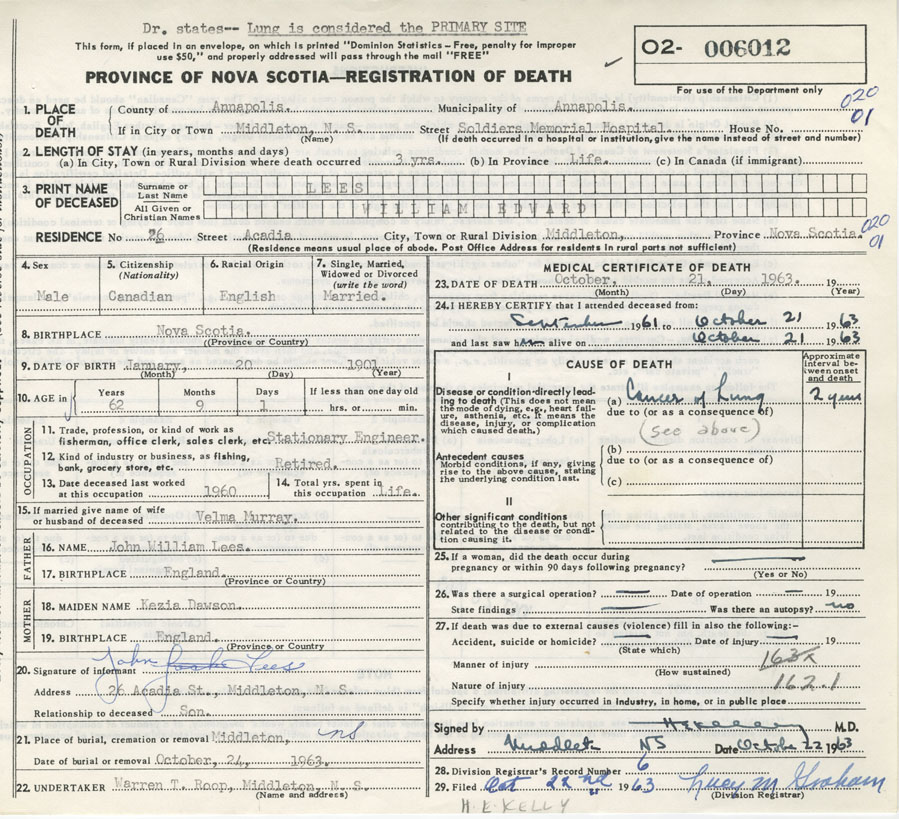 Dr. states-- Lung is considered the PRIMARY SITE
This form, if placed in an envelope, on which is printed "Dominion Statistics – Free, penalty for improper
use $50," and properly addressed will pass through the mail "FREE"
O2- 006012
PROVINCE OF NOVA SCOTIA—REGISTRATION OF DEATH
For use of the Department only
020
01
1. PLACE OF DEATH
County of Annapolis. Municipality of Annapolis.
If in City or Town Middleton, N. S. Street Soldiers Memorial Hospital. House No.
(Name) (If death occurred in a hospital or institution, give the name instead of street and number)
2. LENGTH OF STAY (in years, months and days)
(a) In City, Town or Rural Division where death occurred 3 yrs. (b) In Province Life. (c) In Canada (if immigrant)
3. PRINT NAME OF DECEASED
Surname or Last Name LEES
All Given or Christian Names WILLIAM EDWARD
020
01
RESIDENCE No 26 Street Acadia City, Town or Rural Division Middleton, Province Nova Scotia.
(Residence means usual place of abode. Post Office Address for residents in rural parts not sufficient)
4. Sex
Male
5. Citizenship (Nationality)
Canadian
6. Racial Origin
English
7. Single, Married, Widowed or Divorced (write the word)
Married.
8. BIRTHPLACE Nova Scotia.
((Province or Country)
9. DATE OF BIRTH January, 20 1901
(Month) (Day) (Year)
10. AGE in
Years Months Days If less than one day old
62 9 1 hrs. or min.
OCCUPATION
11. Trade, profession, or kind of work as
fisherman, office clerk, sales clerk, etc. Stationary Engineer.
12. Kind of industry or business, as fishing,
bank, grocery store, etc. Retired.
13. Date deceased last worked
at this occupation 1960
14. Total yrs. spent in
this occupation Life.
15. If married give name of wife
or husband of deceased Velma Murray.
FATHER
16. NAME John William Lees.
17. BIRTHPLACE England.
(Province or Country)
MOTHER
18. MAIDEN NAME Kezia Dawson.
19. BIRTHPLACE England.
(Province or Country)
20. Signature of informant John Lees
Address 26 Acadia St., Middleton, N. S.
Relationship to deceased Son.
21. Place of burial, cremation or removal Middleton, ns
Date of burial or removal October, 24, 1963.
22. UNDERTAKER Warren T. Roop, Middleton, N. S.
(Name and address)
MEDICAL CERTIFICATE OF DEATH
23. DATE OF DEATH October. 21. 1963. 19
(Month) (Day) (Year)
24. I HEREBY CERTIFY that I attended deceased from:
September 1961 to October 21 1963
and last saw him alive on October 21 1963
CAUSE OF DEATH
Approximate interval between onset and death
I
Disease or condition directly leading
to death (This does not mean
the mode of dying, e.g., heart failure,
asthenia, etc. It means the
disease, injury, or complication
which caused death.)
(a) Cancer of Lung 2 years
due to (or as a consequence of)
(see above)
Antecedent causes
Morbid conditions, if any, giving
rise to the above cause, stating
the underlying condition last.
(b)
due to (or as a consequence of)
(c)
II
Other significant conditions
contributing to the death, but not
related to the disease or condition
causing it.
25. If a woman, did the death occur during
pregnancy or within 90 days following pregnancy?
(Yes or No)
26. Was there a surgical operation? Date of operation 19
State findings Was there an autopsy? no
27. If death was due to external causes (violence) fill in also the following:–
Accident, suicide or homicide? Date of injury 19
(State which)
Manner of injury
(How sustained)
Nature of injury 162.1
Specify whether injury occurred in industry, in home, or in public place
Signed by H E Kelly M.D.
Address Middleton NS Date October 22 1963
28. Division Registrar's Record Number 6
29. Filed Oct 22nd 1963 Lucy M Graham
(Division Registrar)
H. E. KELLY